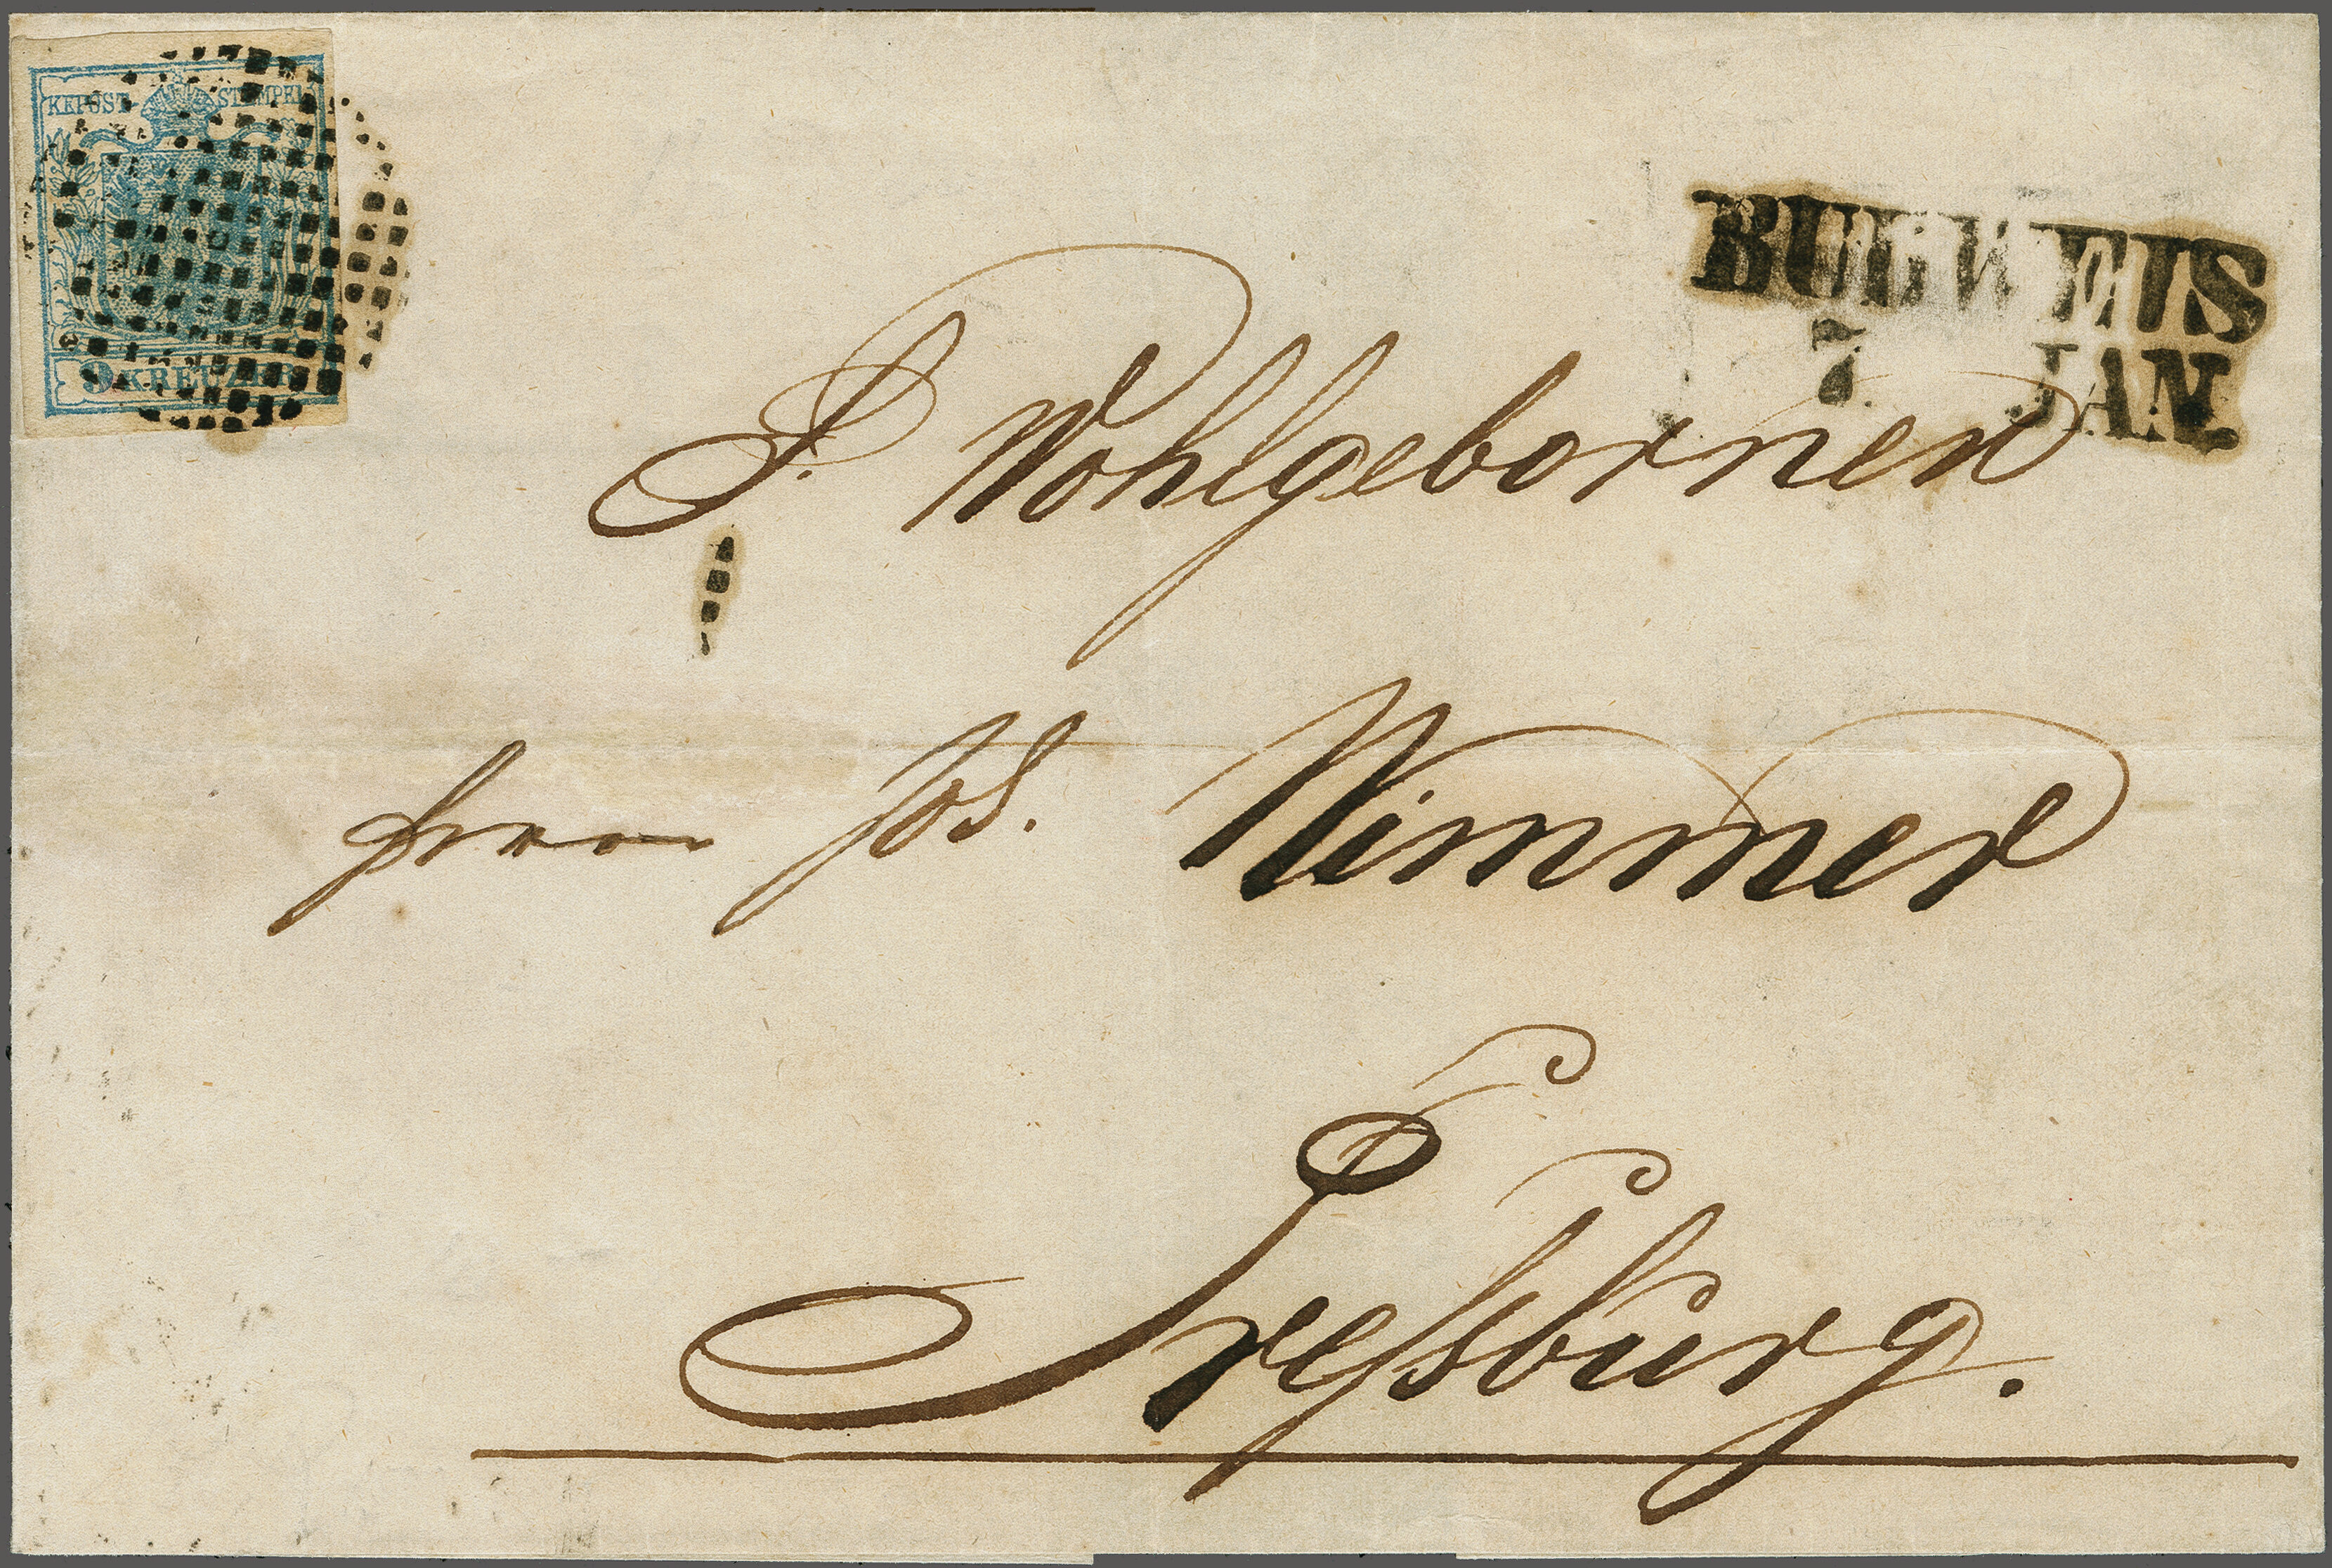 KKPOST-STEMPEL
9 KREUZER
BUDWEIS
7. JAN.
S. Wohlgebornen
Herrn Jos. Wimmer
Pressburg.